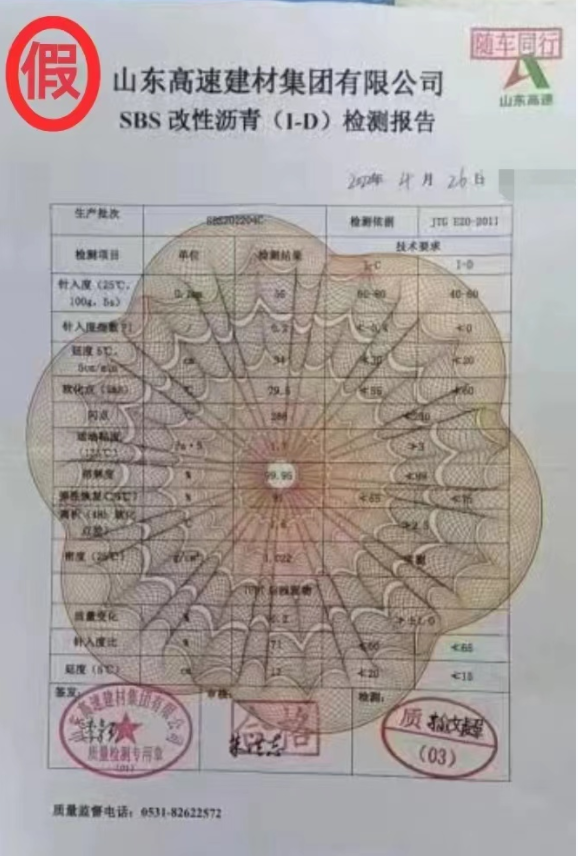 假
随车同行
山东高速
山东高速建材集团有限公司
SBS 改性沥青（I-D）检测报告
2020年 4月 26日
生产批次 SBS202204C 检测依据 JTG E20-2011
检测项目 单位 检测结果 技术要求
I-C I-D
针入度（25℃，100g，5s） 0.1mm 56 60-80 40-60
针入度指数PI 0.2 ≮-0.4 ≮0
延度 5℃，5cm/min cm 34 ≮30 ≮20
软化点 ℃ 79.5 ≮55 ≮60
闪点 ℃ ≮230
运动粘度（135℃） Pa·S ≯3
溶解度 % 99.95 ≮99
弹性恢复（25℃） % ≮65 ≮75
离析（48h 软化点差） ℃ ≯2
密度（25℃） g/cm³ 1.022 实测
质量变化 % ≯±1.0
针入度比 % 71 ≮60 ≮65
延度（5℃） cm ≮20 ≮15
签发： 审核： 检测：
山东高速建材集团有限公司
质量检测专用章
合格
质检
（03）
质量监督电话：0531-82622572